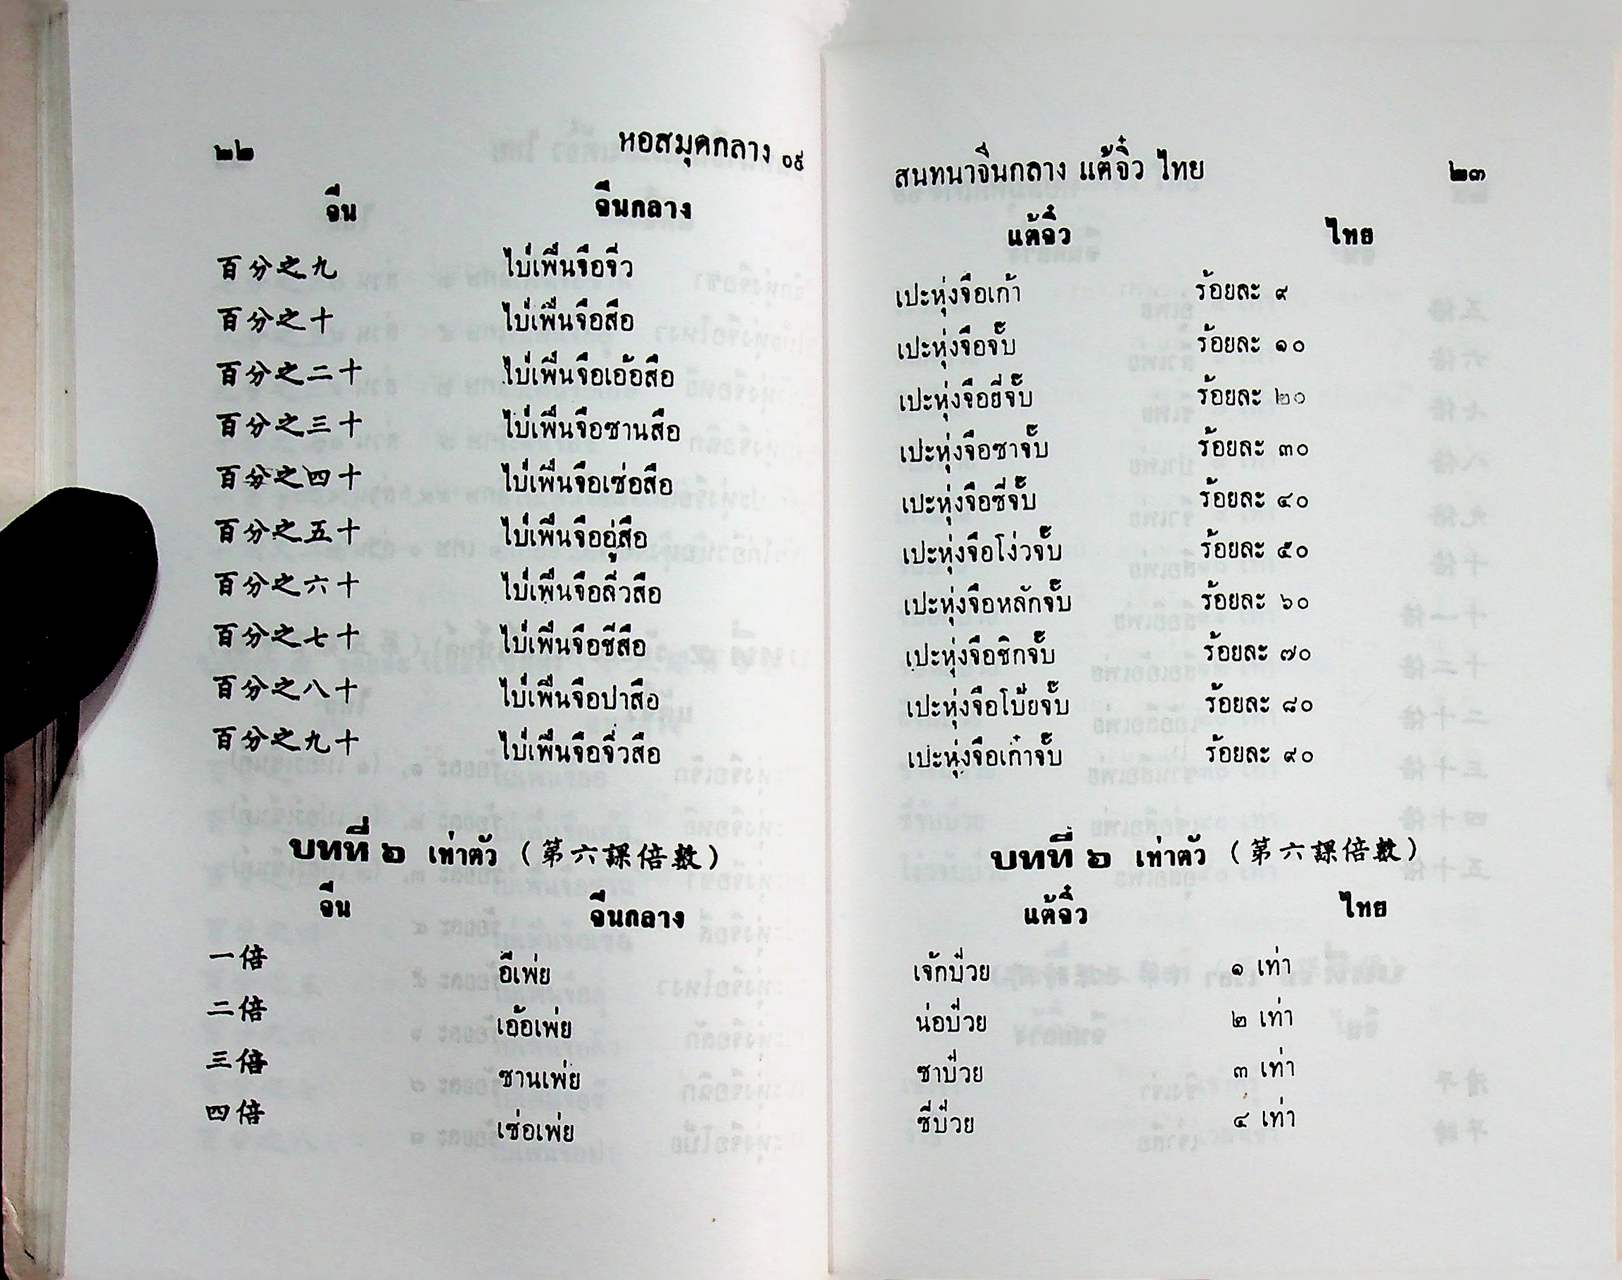 ๒๒ หอสมุดกลาง ๐๙
จีน จีนกลาง
百分之九 ไบ่เพินจือจิ่ว
百分之十 ไบ่เพินจือสือ
百分之二十 ไบ่เพินจือเอ้อสือ
百分之三十 ไบ่เพินจือซานสือ
百分之四十 ไบ่เพินจือเซ่อสือ
百分之五十 ไบ่เพินจืออู่สือ
百分之六十 ไบ่เพินจือลิ่วสือ
百分之七十 ไบ่เพินจือชีสือ
百分之八十 ไบ่เพินจือปาสือ
百分之九十 ไบ่เพินจือจิ่วสือ
บทที่ ๖ เท่าตัว (第六課倍数)
จีน จีนกลาง
一倍 อีเพ่ย
二倍 เอ้อเพ่ย
三倍 ซานเพ่ย
四倍 เซ่อเพ่ย
สนทนาจีนกลาง แต้จิ๋ว ไทย ๒๓
แต้จิ๋ว ไทย
เปะหุ่งจือเก้า ร้อยละ ๙
เปะหุ่งจือจั๊บ ร้อยละ ๑๐
เปะหุ่งจือยี่จั๊บ ร้อยละ ๒๐
เปะหุ่งจือซาจั๊บ ร้อยละ ๓๐
เปะหุ่งจือซี่จั๊บ ร้อยละ ๔๐
เปะหุ่งจือโง่วจั๊บ ร้อยละ ๕๐
เปะหุ่งจือหลักจั๊บ ร้อยละ ๖๐
เปะหุ่งจือชิกจั๊บ ร้อยละ ๗๐
เปะหุ่งจือโป๊ยจั๊บ ร้อยละ ๘๐
เปะหุ่งจือเก๋าจั๊บ ร้อยละ ๙๐
บทที่ ๖ เท่าตัว (第六課倍数)
แต้จิ๋ว ไทย
เจ้กป๋วย ๑ เท่า
น่อป๋วย ๒ เท่า
ซาป๋วย ๓ เท่า
ซี่ป๋วย ๔ เท่า